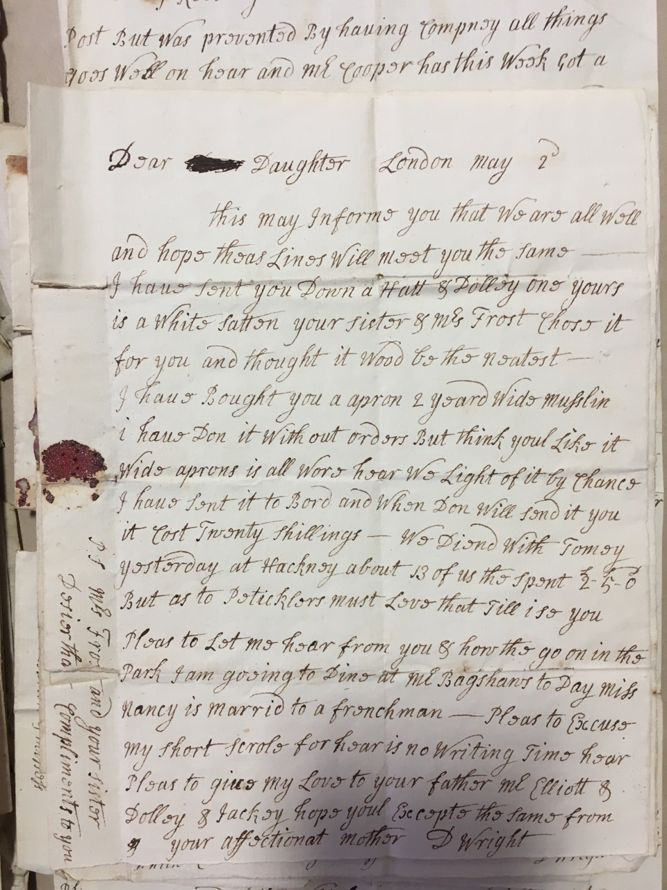 Post But Was prevented By having Compney all things
goes Well on hear and mr Cooper has this Week Got a
Dear Daughter London may 2d
this may Informe you that We are all Well
and hope theas Lines Will meet you the same —
I have sent you Down a Hatt & Dolley one yours
is a White satten your sister & mrs Frost Chose it
for you and thought it Wood be the neatest —
I have Bought you a apron 2 yeard Wide musslin
i have Don it With out orders But think youl Like it
Wide aprons is all Wore hear We Light of it by Chance
I have sent it to Bord and When Don Will send it you
it Cost Twenty shillings — We Diend With Tomey
yesterday at Hackney about 13 of us the spent 2-5-0
But as to Peticklers must Leve that Till i se you
Pleas to Let me hear from you & how the go on in the
Park I am goeing to Dine at mr Bagshaws to Day miss
nancy is marrid to a frenchman — Pleas to Excuse
my short scrole for hear is no Writing Time hear
Pleas to give my Love to your father mr Elliott &
Dolley & Jackey hope youl Excepte the same from
your affectionat mother D Wright
PS mrs Frost and your sister
Desier tha Compliments to you